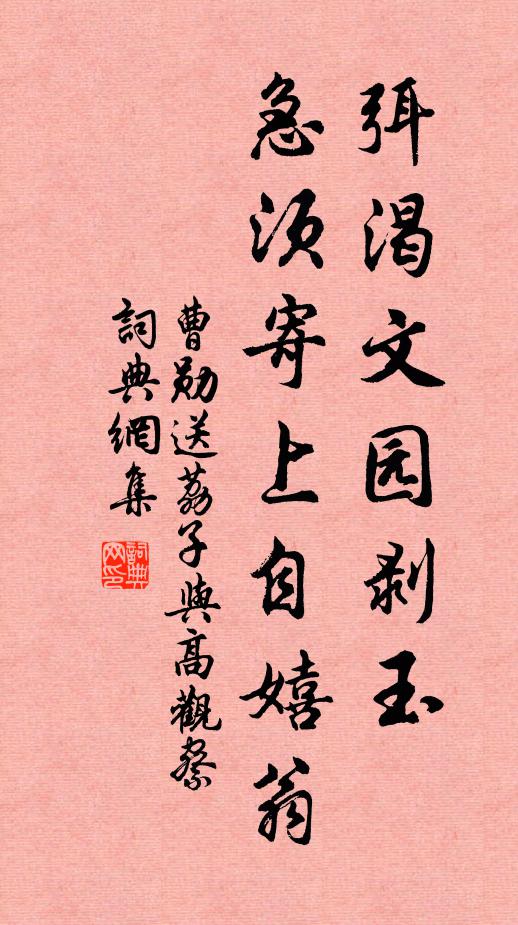 弭渴文园剥玉
急须寄上自嬉翁
曹勋送荔子與高觀察
詞典網集
詞典网印